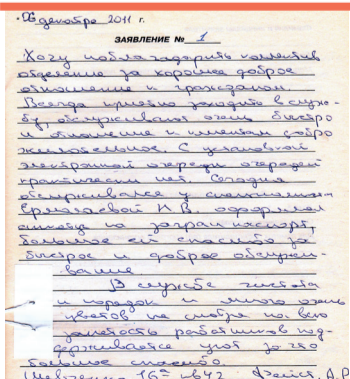 06 декабря 2011 г.
ЗАЯВЛЕНИЕ № 1
Хочу поблагодарить коллектив
отделение за хорошее доброе
отношение к гражданам.
Всегда приятно заходить в служ-
бу, обслуживают очень быстро
и отношение к клиентам добро
желательное. С установкой
электронной очереди очередей
практически нет. Сегодня
обслуживался у специалиста
Ермолаевой Н.В. оформлял
анкету на загранпаспорт,
большое ей спасибо за
быстрое и доброе обслужи-
вание
В службе чистота
и порядок и много очень
цветов не смотря на всю
занятость работников под-
держивается уют за что
большое спасибо.
Шевченко 16ª кв 42 А.Р.